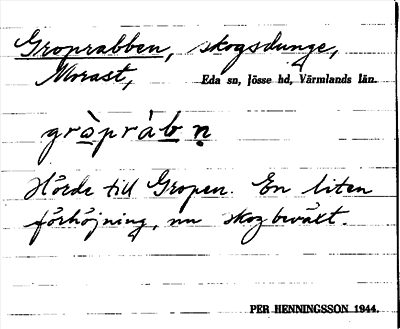 Groprabben, skogsdunge,
Morast, Eda sn, Jösse hd, Värmlands län.
gròpràb ṇ
Hörde till Gropen. En liten
förhöjning, nu skogbeväxt.
PER HENNINGSSON 1944.